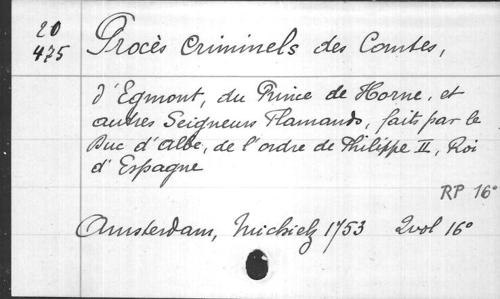 20
475
Procès Criminels des Comtes,
d'Egmont, du Prince de Horne, et
autres Seigneurs Flamands, faits par le
Duc d'Albe, de l'ordre de Philippe II, Roi
d'Espagne
RP 16°
Amsterdam, Michiels 1753 2vol 16°